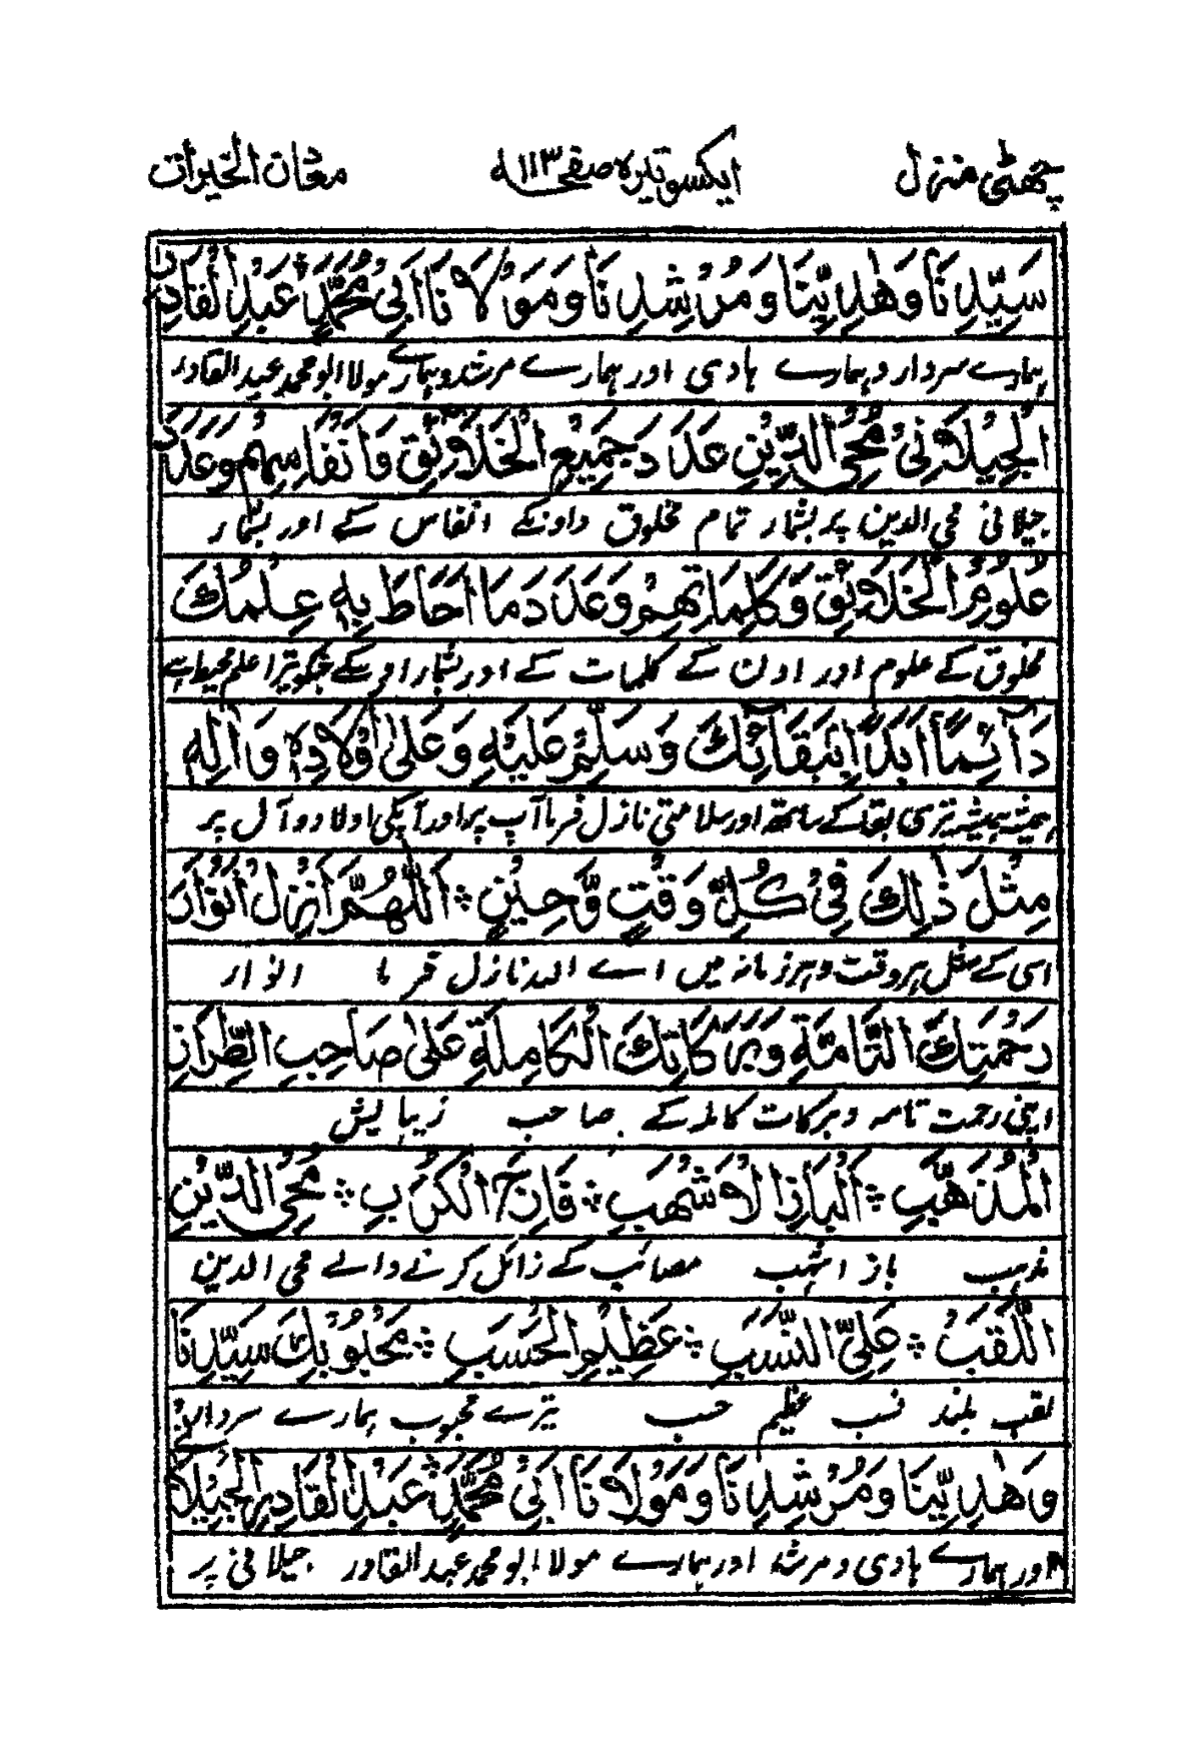 چھٹی منزل ایکسو تیرہ صفحہ ۱۱۳ معان الخیرات
سَيِّدِنَا وَهَادِيِّنَا وَمُرْشِدِنَا وَمَوْلَانَا أَبِي مُحَمَّدٍ عَبْدِ الْقَادِرِ
ہمارے سردار وہمارے ہادی اور ہمارے مرشد وہمارے مولانا ابو محمد عبد القادر
الْجِيْلَانِيْ مُحْيِ الدِّيْنِ عَدَدَ جَمِيْعِ الْخَلَائِقِ وَاَنْفَاسِهِمْ وَعَدَدَ
جیلانی محی الدین پر بشمار تمام مخلوق واونکے انفاس کے اور بشمار
عُلُوْمِ الْخَلَائِقِ وَكَلِمَاتِهِمْ وَعَدَدَ مَا اَحَاطَ بِهٖ عِلْمُكَ
مخلوق کے علوم اور اون کے کلمات کے اور بشمار اوسکے جسکو تیرا علم محیط ہے
دَآئِمًا اَبَدًا بِبَقَآئِكَ وَسَلِّمْ عَلَيْهِ وَعَلٰى اَوْلَادِهٖ وَاٰلِهٖ
ہمیشہ ہمیشہ تیری بقا کے ساتھ اور سلامتی نازل فرما آپ پر اور آپکی اولاد و آل پر
مِثْلَ ذٰلِكَ فِيْ كُلِّ وَقْتٍ وَّحِيْنٍ ؞ اَللّٰهُمَّ اَنْزِلْ اَنْوَارَ
اسی کے مثل ہر وقت وہر زمانہ میں اے اللہ نازل فرما انوار
رَحْمَتِكَ التَّامَّةِ وَبَرَكَاتِكَ الْكَامِلَةِ عَلٰى صَاحِبِ الطِّرَازِ
اپنی رحمت تامہ وبرکات کاملہ کے صاحب زیبایش
الْمُذَهَّبِ ؞ اَلْبَازِ الْاَشْهَبِ ؞ فَارِجِ الْكُرَبِ ؞ مُحْيِ الدِّيْنِ
مذہب باز اشہب مصائب کے زائل کرنے والے محی الدین
اللَّقَبِ ؞ عَلِيِّ النَّسَبِ ؞ عَظِيْمِ الْحَسَبِ ؞ مَحْبُوْبِكَ سَيِّدِنَا
لقب بلند نسب عظیم حسب تیرے محبوب ہمارے سردار
وَهَادِيِّنَا وَمُرْشِدِنَا وَمَوْلَانَا اَبِيْ مُحَمَّدٍ عَبْدِ الْقَادِرِ الْجِيْلَانِيْ
اور ہمارے ہادی ومرشد اور ہمارے مولانا ابو محمد عبد القادر جیلانی پر